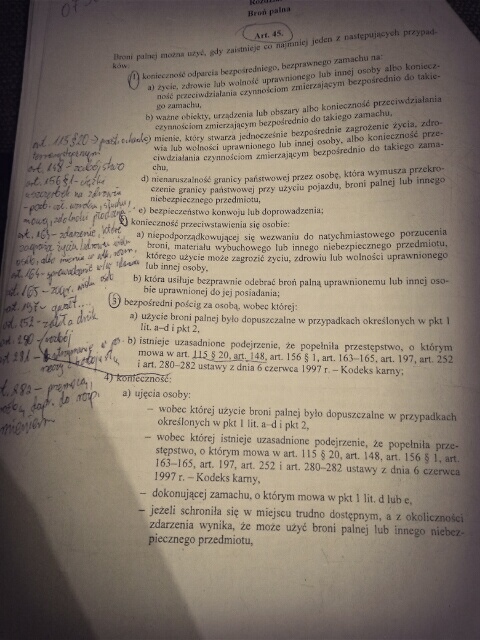 07
Broń palna
Art. 45.
Broni palnej można użyć, gdy zaistnieje co najmniej jeden z następujących przypad-
ków:
1) konieczność odparcia bezpośredniego, bezprawnego zamachu na:
a) życie, zdrowie lub wolność uprawnionego lub innej osoby albo koniecz-
ność przeciwdziałania czynnościom zmierzającym bezpośrednio do takie-
go zamachu,
b) ważne obiekty, urządzenia lub obszary albo konieczność przeciwdziałania
czynnościom zmierzającym bezpośrednio do takiego zamachu,
c) mienie, który stwarza jednocześnie bezpośrednie zagrożenie życia, zdro-
wia lub wolności uprawnionego lub innej osoby, albo konieczność prze-
ciwdziałania czynnościom zmierzającym bezpośrednio do takiego zama-
chu,
d) nienaruszalność granicy państwowej przez osobę, która wymusza przekro-
czenie granicy państwowej przy użyciu pojazdu, broni palnej lub innego
niebezpiecznego przedmiotu,
e) bezpieczeństwo konwoju lub doprowadzenia;
konieczność przeciwstawienia się osobie:
a) niepodporządkowującej się wezwaniu do natychmiastowego porzucenia
broni, materiału wybuchowego lub innego niebezpiecznego przedmiotu,
którego użycie może zagrozić życiu, zdrowiu lub wolności uprawnionego
lub innej osoby,
b) która usiłuje bezprawnie odebrać broń palną uprawnionemu lub innej oso-
bie uprawnionej do jej posiadania;
3) bezpośredni pościg za osobą, wobec której:
a) użycie broni palnej było dopuszczalne w przypadkach określonych w pkt 1
lit. a–d i pkt 2,
b) istnieje uzasadnione podejrzenie, że popełniła przestępstwo, o którym
mowa w art. 115 § 20, art. 148, art. 156 § 1, art. 163–165, art. 197, art. 252
i art. 280–282 ustawy z dnia 6 czerwca 1997 r. – Kodeks karny;
4) konieczność:
a) ujęcia osoby:
– wobec której użycie broni palnej było dopuszczalne w przypadkach
określonych w pkt 1 lit. a–d i pkt 2,
– wobec której istnieje uzasadnione podejrzenie, że popełniła prze-
stępstwo, o którym mowa w art. 115 § 20, art. 148, art. 156 § 1, art.
163–165, art. 197, art. 252 i art. 280–282 ustawy z dnia 6 czerwca
1997 r. – Kodeks karny,
– dokonującej zamachu, o którym mowa w pkt 1 lit. d lub e,
– jeżeli schroniła się w miejscu trudno dostępnym, a z okoliczności
zdarzenia wynika, że może użyć broni palnej lub innego niebez-
piecznego przedmiotu,
art. 115 § 20 → 
art. 148 - zabójstwo
art. 156 § 1 - ciężki
uszczerbek na zdrowiu
art. 163 - zdarzenie, które
art. 164 - sprowadzenie
art. 165 -
art. 197 - gwałt
art. 252 - 
art. 280 - rozbój